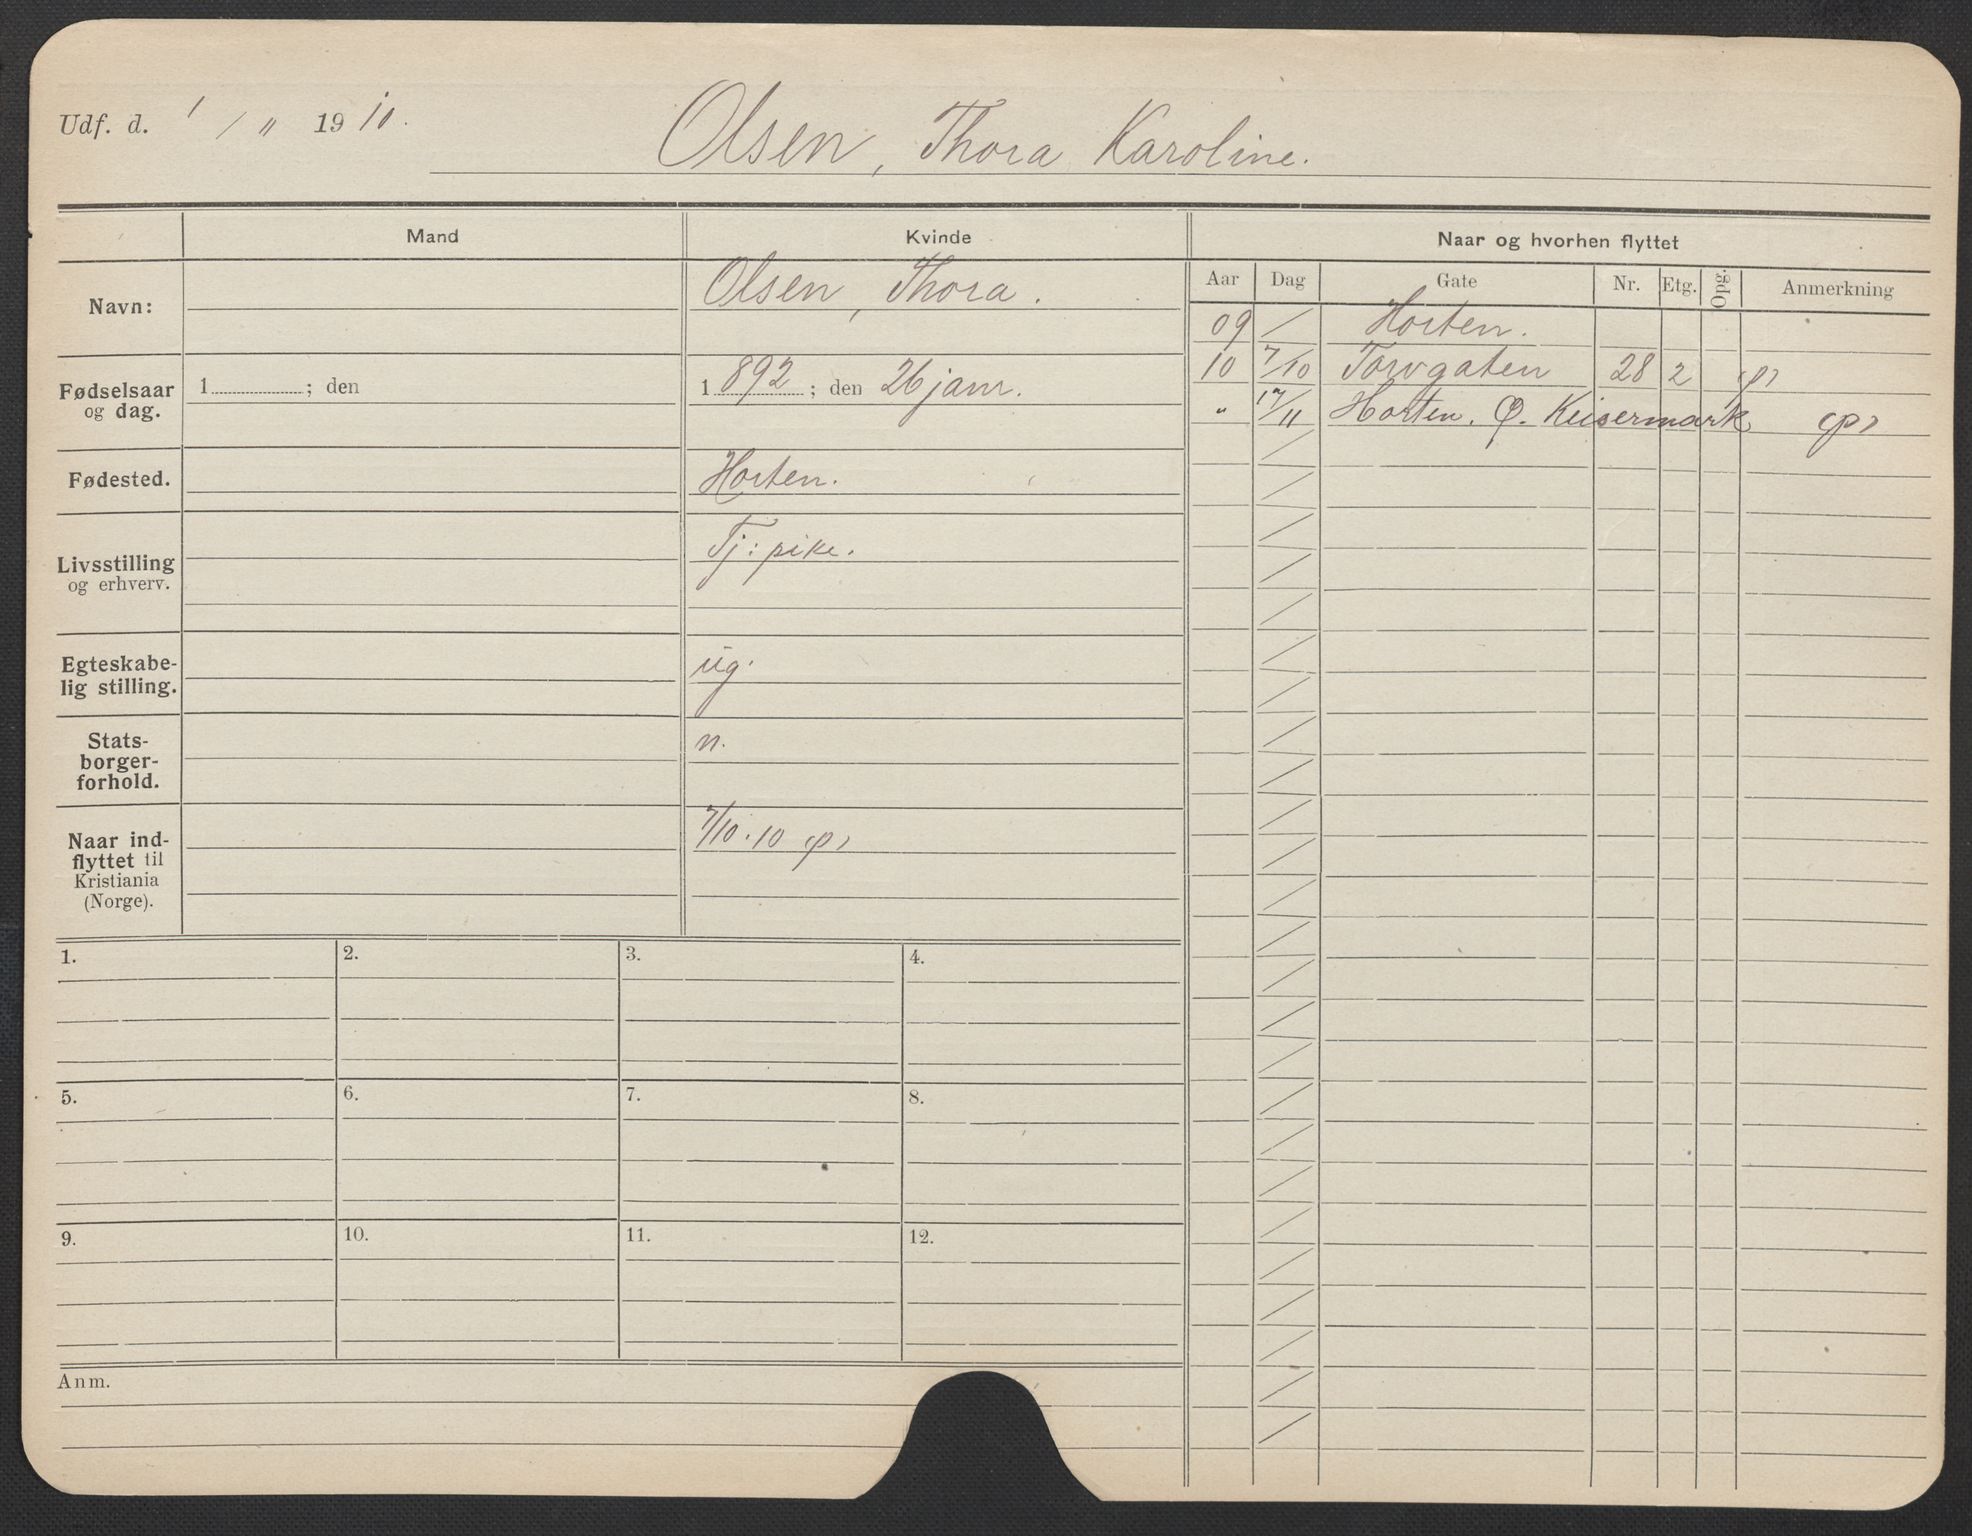 Udf. d. 1 / " 1910.
Olsen, Thora Karoline.
Mand
Kvinde
Naar og hvorhen flyttet
Aar Dag Gate Nr. Etg. Opg. Anmerkning
Navn:
Olsen, Thora.
Fødselsaar
og dag.
1 ; den
1892; den 26 janr.
Fødested.
Horten.
Livsstilling
og erhverv.
Tj: pike.
Egteskabe-
lig stilling.
ug.
Stats-
borger-
forhold.
n.
Naar ind-
flyttet til
Kristiania
(Norge).
7/10. 10 (p)
09 / Horten.
10 7/10 Torvgaten 28 2 (p)
" 17/11 Horten. Keisermark (p)
1. 2. 3. 4.
5. 6. 7. 8.
9. 10. 11. 12.
Anm.